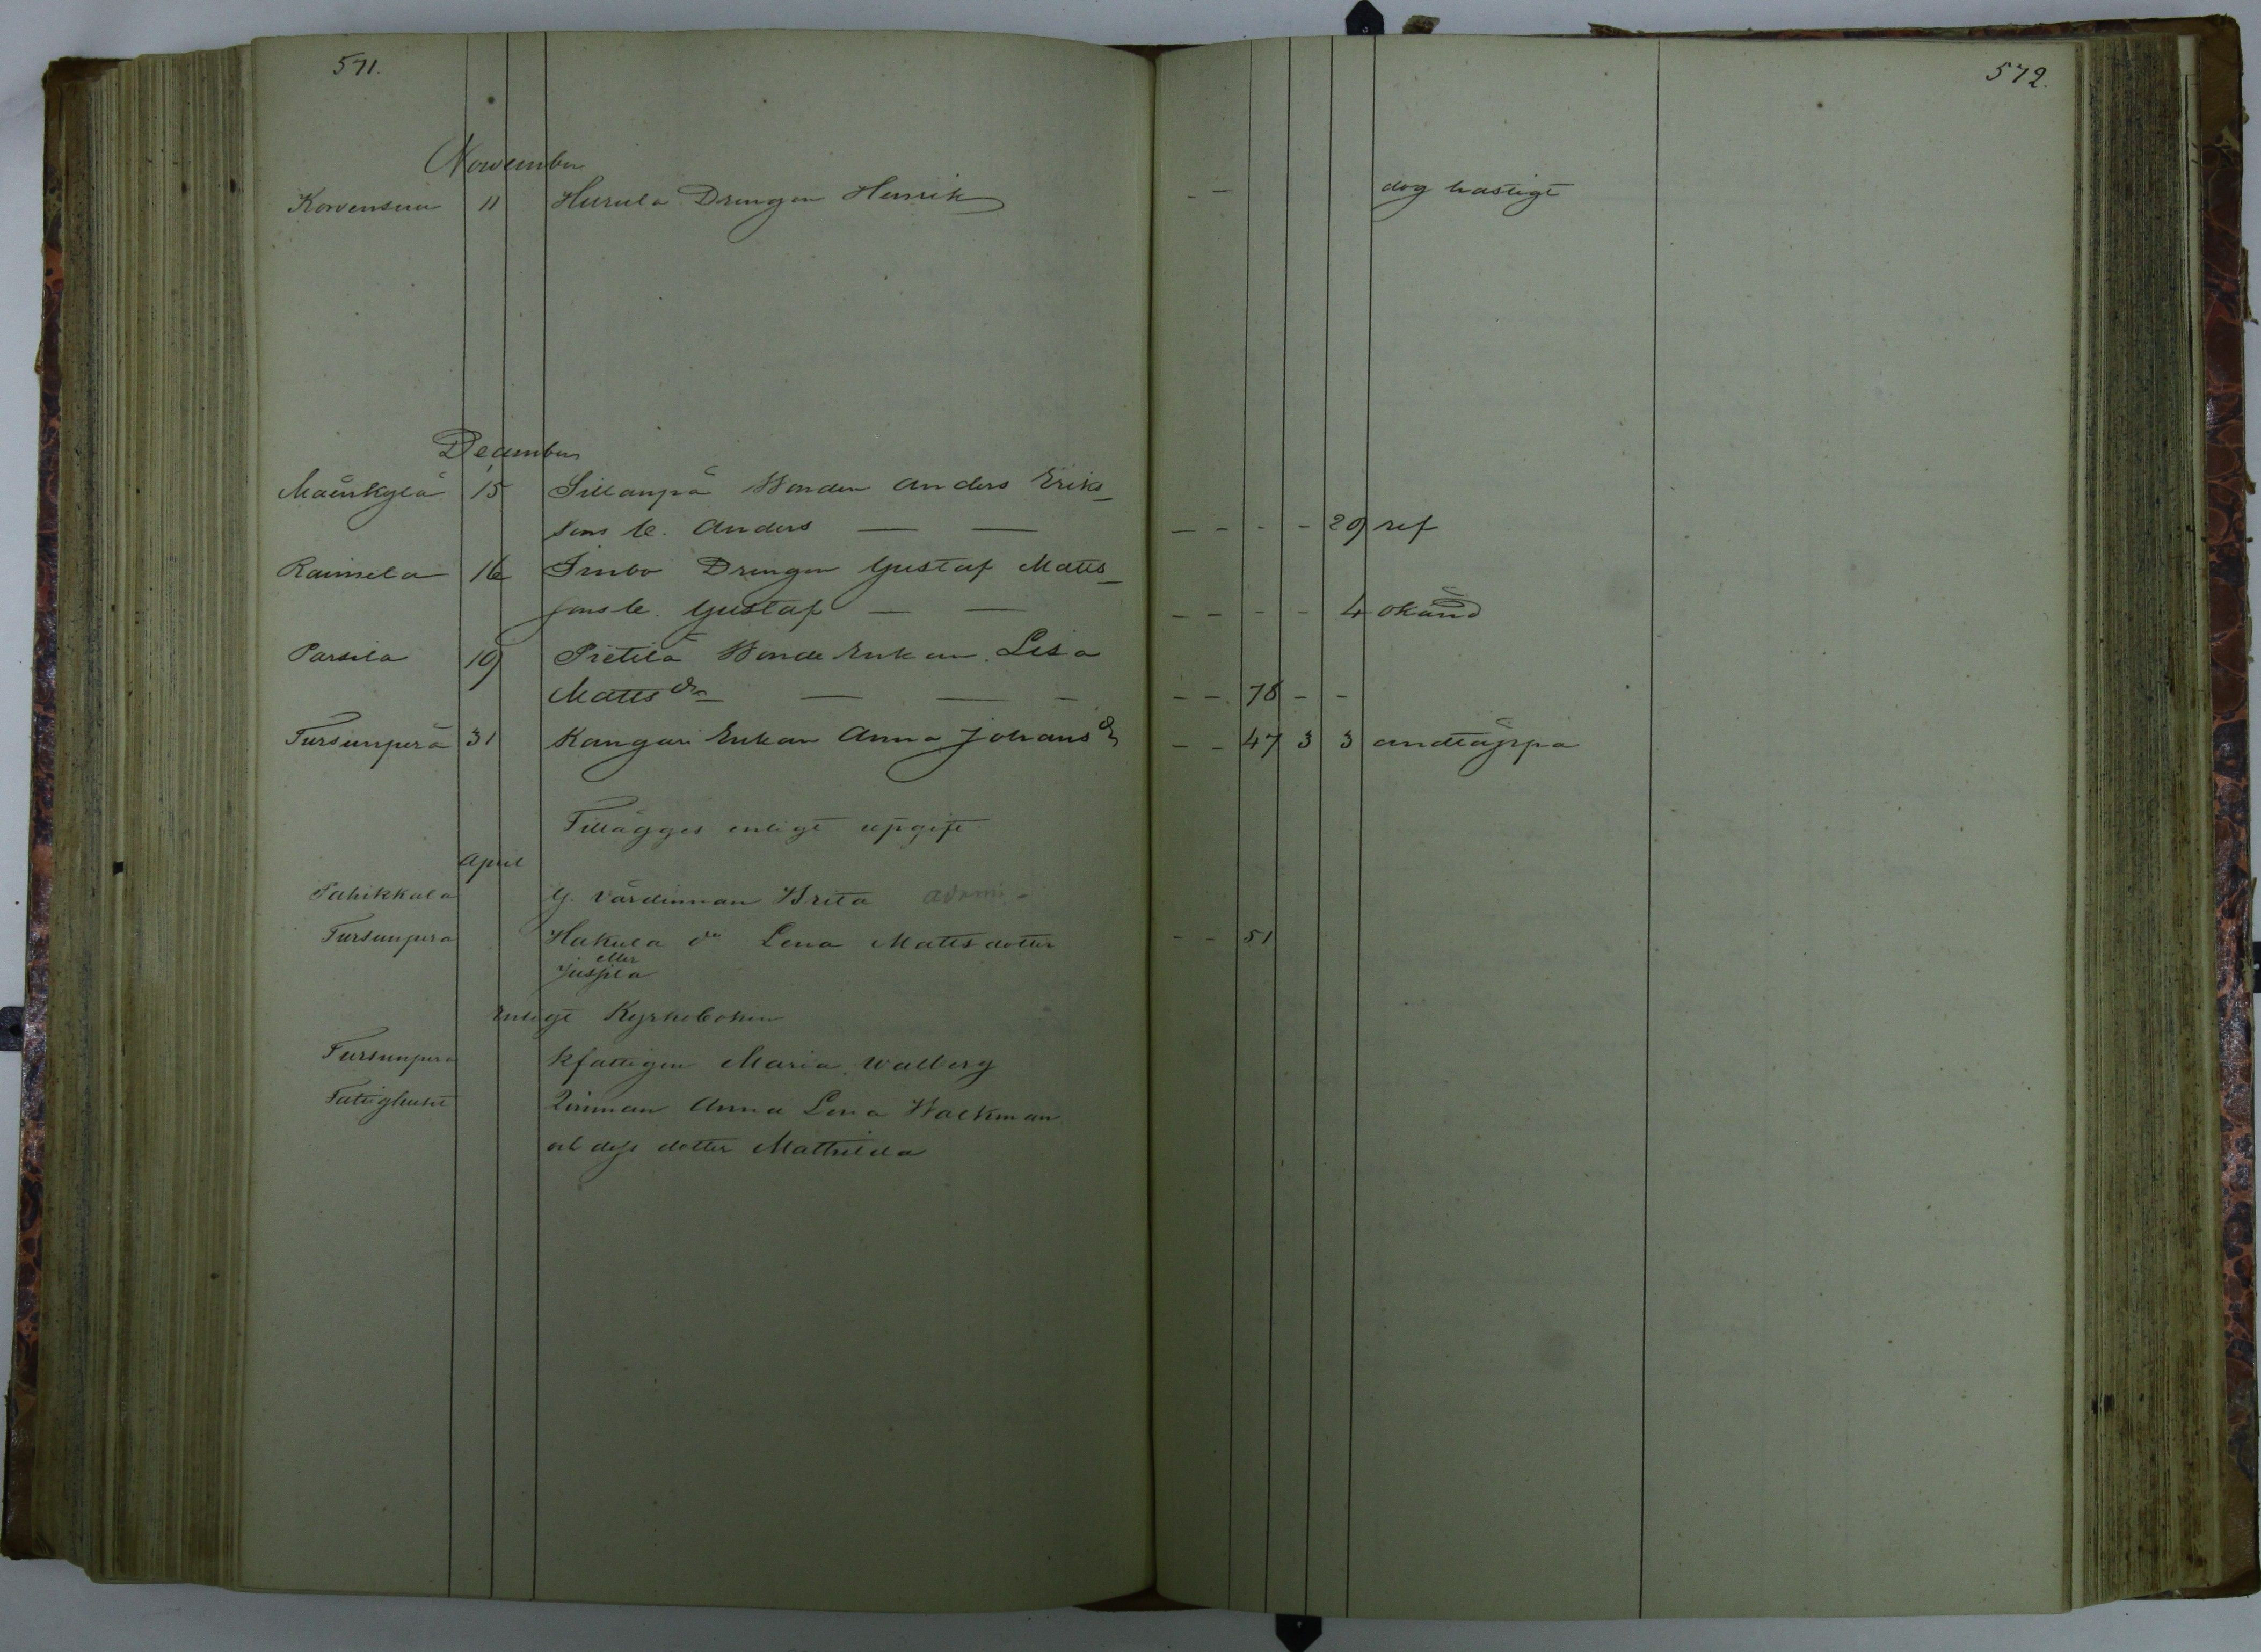 571.
572.
November
Korvensuu 11 Hurula Drengen Henrik - - dog hastigt
December
Männkylä 15 Sillanpä Bonden Anders Eriks_
sons b. Anders — — - - - - 29 ref
Raimela 16 Simbo Drengen Gustaf Matts_
sons b. Gustaf — — - - - - 4 okänd
Parsila 19 Pietilä Bonde Enkan Lisa
Mattsdr — — — - - 78 - -
Tursunperä 31 Kangari Enkan Anna Johansdr - - 47 3 3 andtäppa
Tillägges enligt upgift
April
Pahikkala g. värdinnan Brita Adami-
Tursunpera Hakula do Lena Mattsdotter - - 51
eller
Juspila
Enligt Kyrkoboken
Tursunpera kfattigen Maria Walberg
Fattighuset Qvinnan Anna Lena Backman
och dess dotter Mathilda